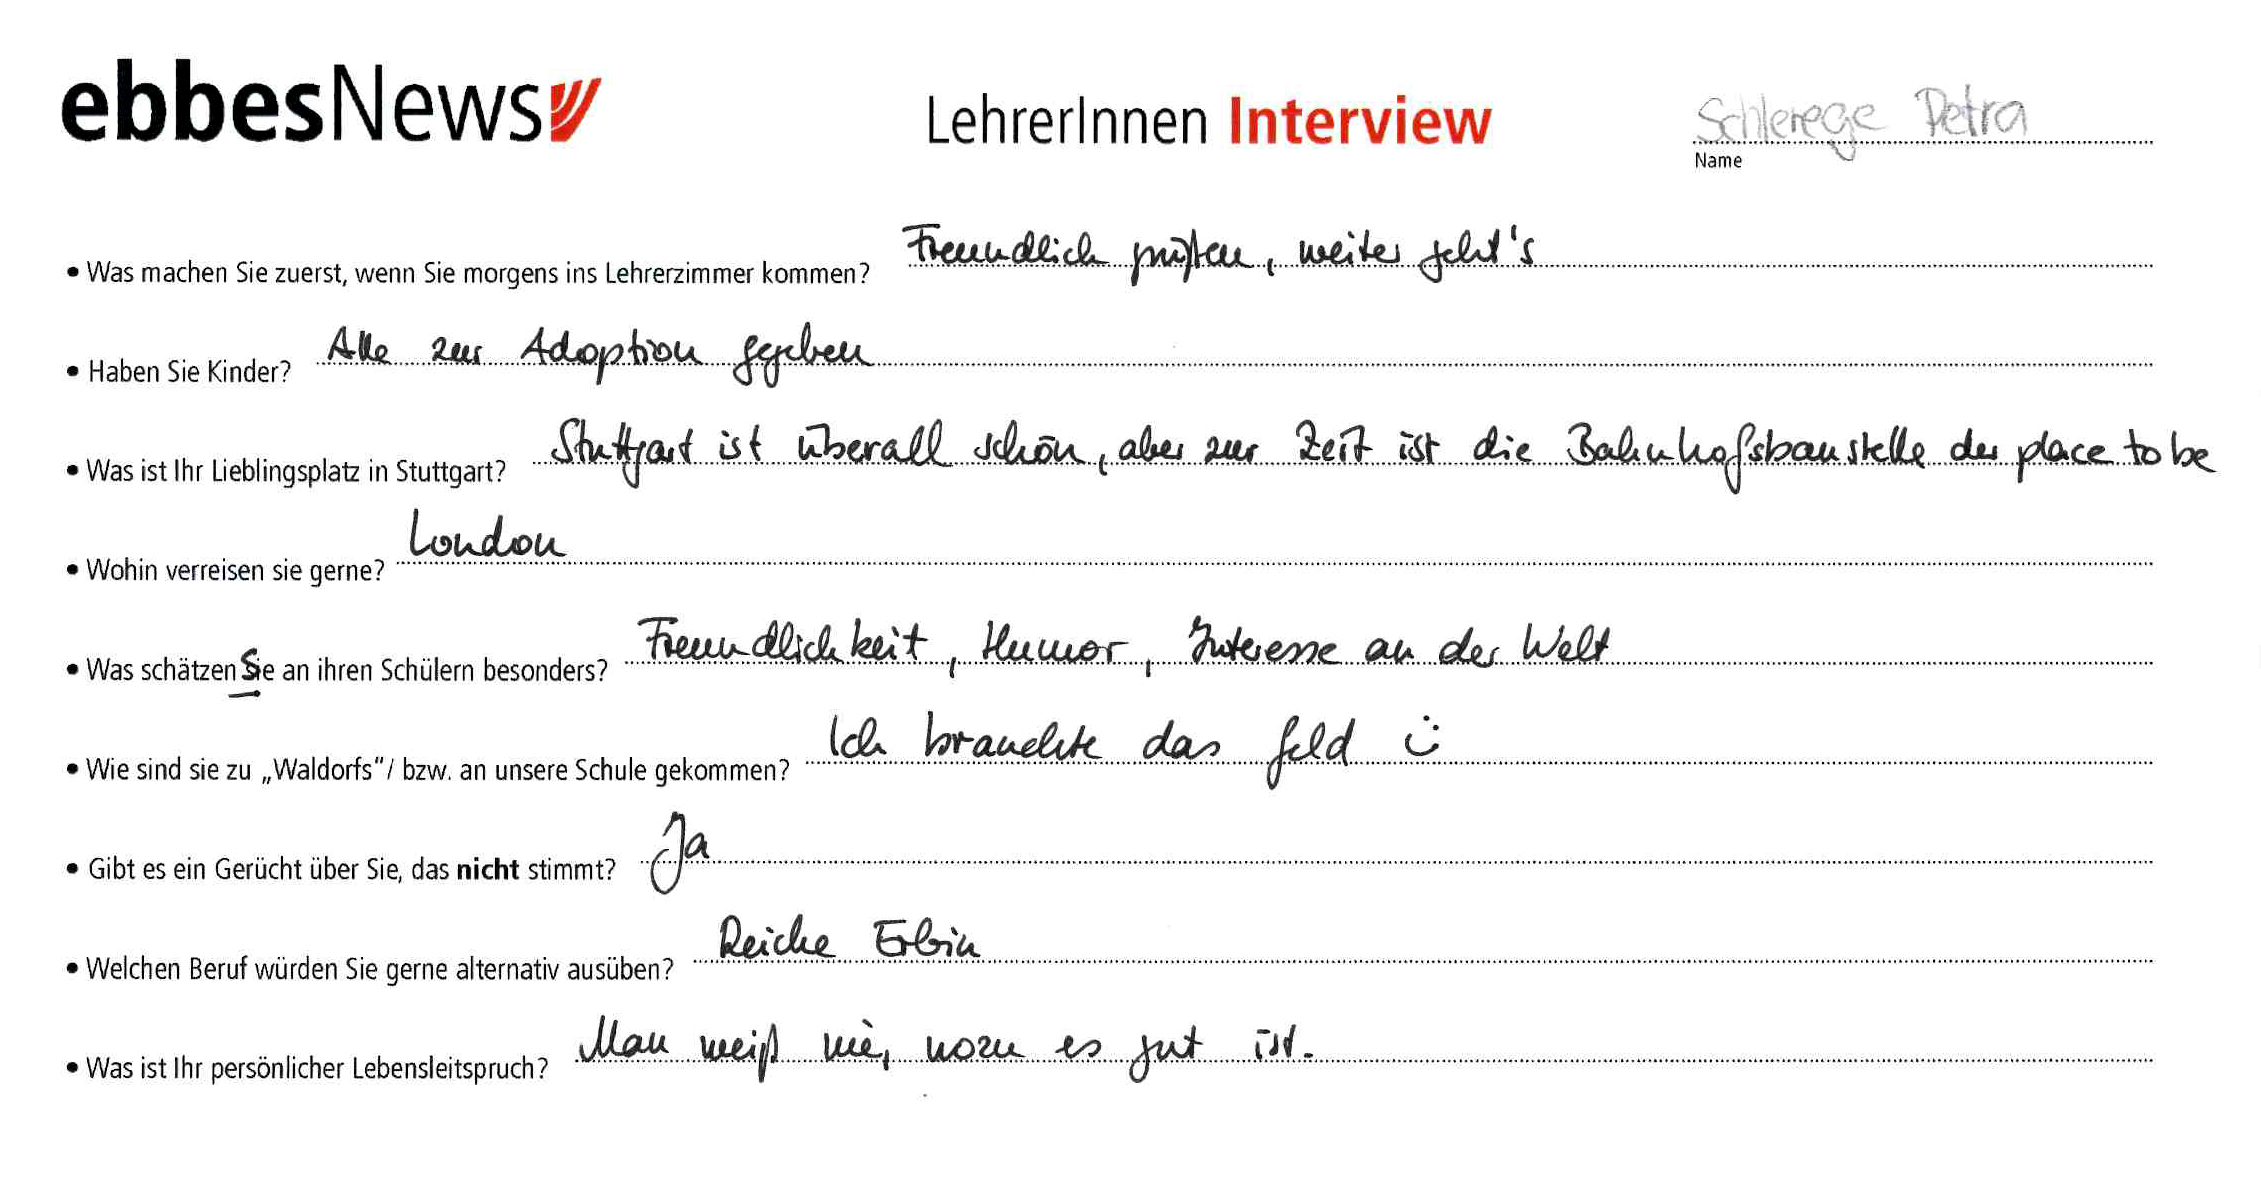 ebbesNews LehrerInnen Interview Schlerege Petra
Name
• Was machen Sie zuerst, wenn Sie morgens ins Lehrerzimmer kommen? Freundlich grüßen, weiter geht's
• Haben Sie Kinder? Alle zur Adoption gegeben
• Was ist Ihr Lieblingsplatz in Stuttgart? Stuttgart ist überall schön, aber zur Zeit ist die Bahnhofsbaustelle der place to be
• Wohin verreisen sie gerne? London
• Was schätzen Sie an ihren Schülern besonders? Freundlichkeit, Humor, Interesse an der Welt
• Wie sind sie zu „Waldorfs"/ bzw. an unsere Schule gekommen? Ich brauchte das Geld ü
• Gibt es ein Gerücht über Sie, das nicht stimmt? Ja
• Welchen Beruf würden Sie gerne alternativ ausüben? Reiche Erbin
• Was ist Ihr persönlicher Lebensleitspruch? Man weiß nie, wozu es gut ist.